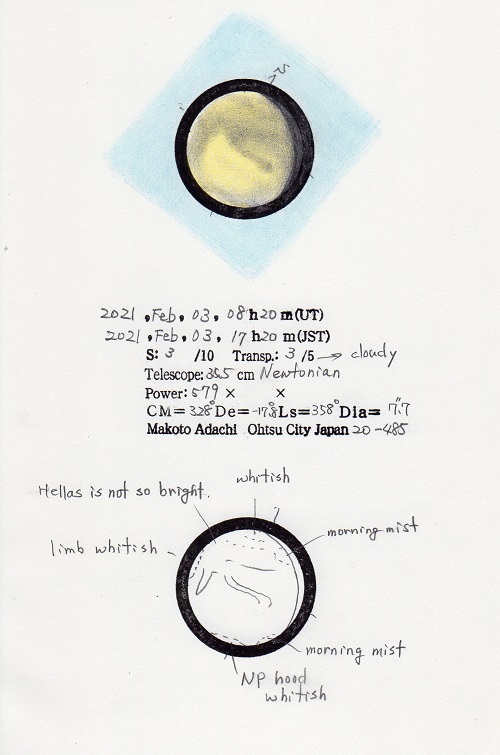 S
2021, Feb, 03, 08h20m(UT)
2021, Feb, 03, 17h20m(JST)
S: 3 /10 Transp.: 3 /5 → cloudy
Telescope: 35.5 cm Newtonian
Power: 579 × ×
CM=328° De=-17.8° Ls=358° Dia=7".7
Makoto Adachi Ohtsu City Japan 20-485
whitish
Hellas is not so bright.
morning mist
limb whitish
morning mist
NP hood
whitish